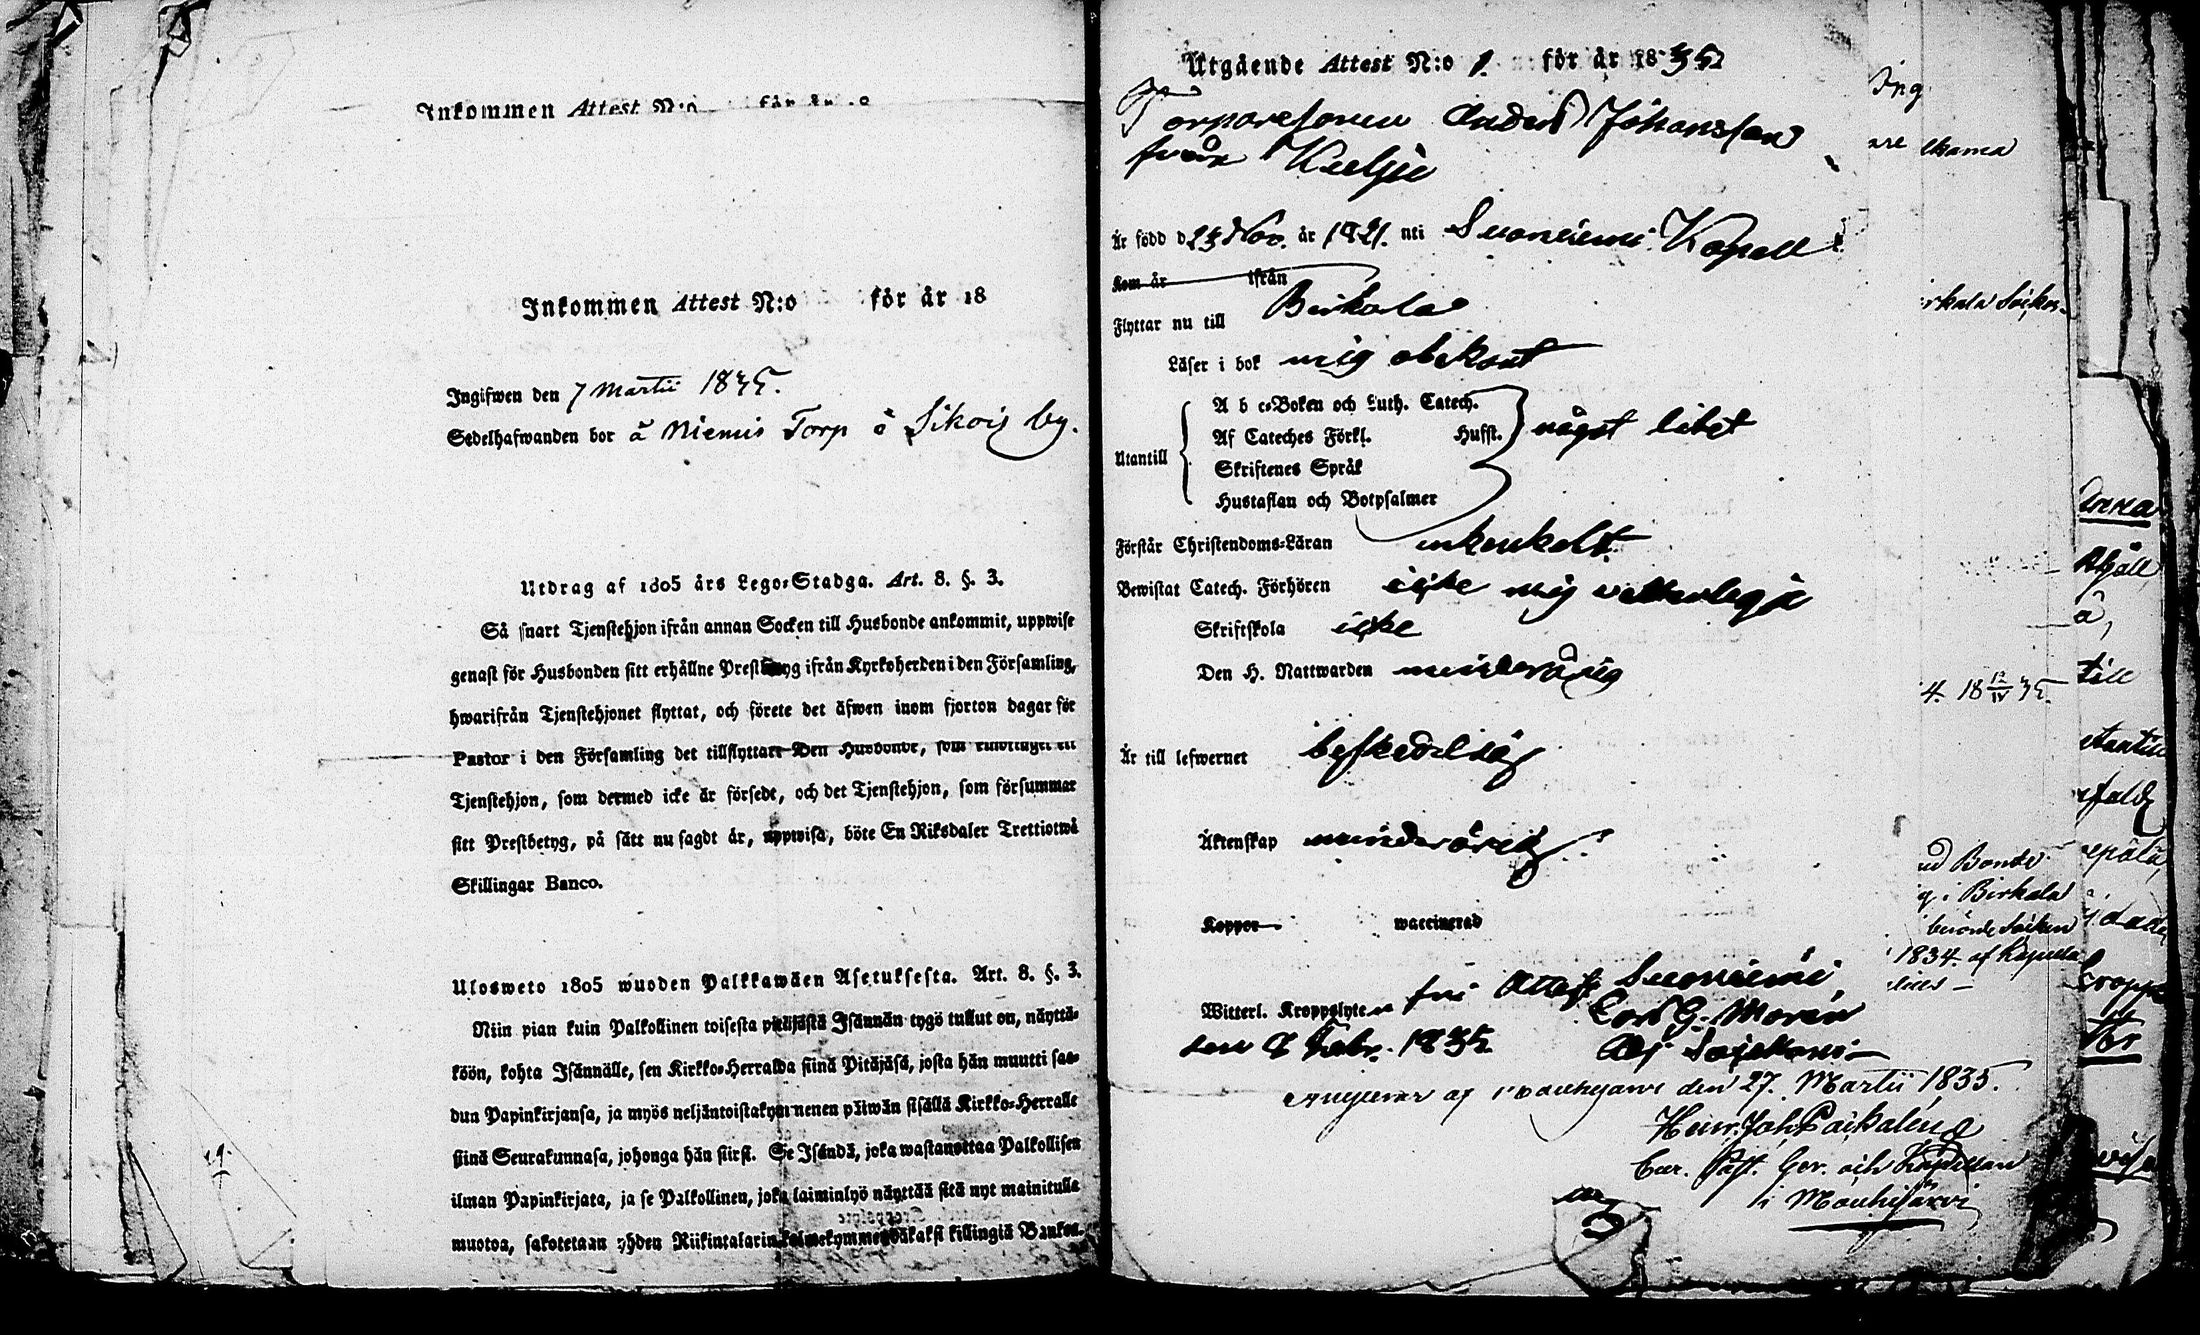 Inkommen Attest N:o för år 18
Inkommen Attest N:o för år 18
Ingifwen den 7 Martii 1835.
Sedelhafwanden bor å Niemis Torp å Sikois by.
Utdrag af 1805 års Lego-Stadga. Art. 8. §. 3.
Så snart Tjenstehjon ifrån annan Socken till Husbonde ankommit, uppwise
genast för Husbonden sitt erhållne Prestbetyg ifrån Kyrkoherden i den Församling,
hwarifrån Tjenstehjonet flyttat, och förete det äfwen inom fjorton dagar för
Pastor i den Församling det tillflyttat. Den Husbonde, som
Tjenstehjon, som dermed icke är försedt, och det Tjenstehjon, som försummar
sitt Prestbetyg, på sätt nu sagdt är, uppwisa, böte En Riksdaler Trettiotwå
Skillingar Banco.
Ulosweto 1805 wuoden Palkkawäen Asetuksesta. Art. 8. §. 3.
Niin pian kuin Palkollinen toisesta pitäjästä Isännän tygö tullut on, näyttä-
köön, kohta Isännälle, sen Kirkko-Herralda siinä Pitäjäsä, josta hän muutti saa-
dun Papinkirjansa, ja myös neljäntoistakymmenen päiwän sisällä Kirkko-Herralle
siinä Seurakunnasa, johonga hän siirsi. Se Isändä, joka wastanottaa Palkollisen
ilman Papinkirjata, ja se Palkollinen, joka laiminlyö näyttää sitä nyt mainitulla
muotoa, sakotetaan yhden Riikintalarin kolmekymmendäkaksi killingiä Bankos.
Utgående Attest N:o 1. för år 1835
Torparesonen Anders Johansson
från Kulju
Är född d. 23 Nov. år 1821. uti Suoniemi Kapell
Kom år ifrån
Flyttar nu till Birkala
Läser i bok mig obekant
Utantill
A b c-Boken och Luth. Catech.
Af Cateches Förkl. Hufst. något litet
Skriftenes Språk
Hustaflan och Botpsalmer
Förstår Christendoms-Läran enkelt
Bewistat Catech. Förhören icke mig
Skriftskola icke
Den H. Nattwarden minderårig
Är till lefwernet beskedelig
Äktenskap minderårig
Koppor waccinerad
Witterl. Kroppslyte fri Attest Suoniemi,
den 8 Febr. 1835 Carl G. Morén
af den 27. Martii 1835.
Henr. Joh.
Cur. Past. Ger. och Kapellan
i Mouhijärvi
ing
rkala Socken
4. 18 12/IV 35.
ud Bonde
i Birkala
1834. af
Anna
till